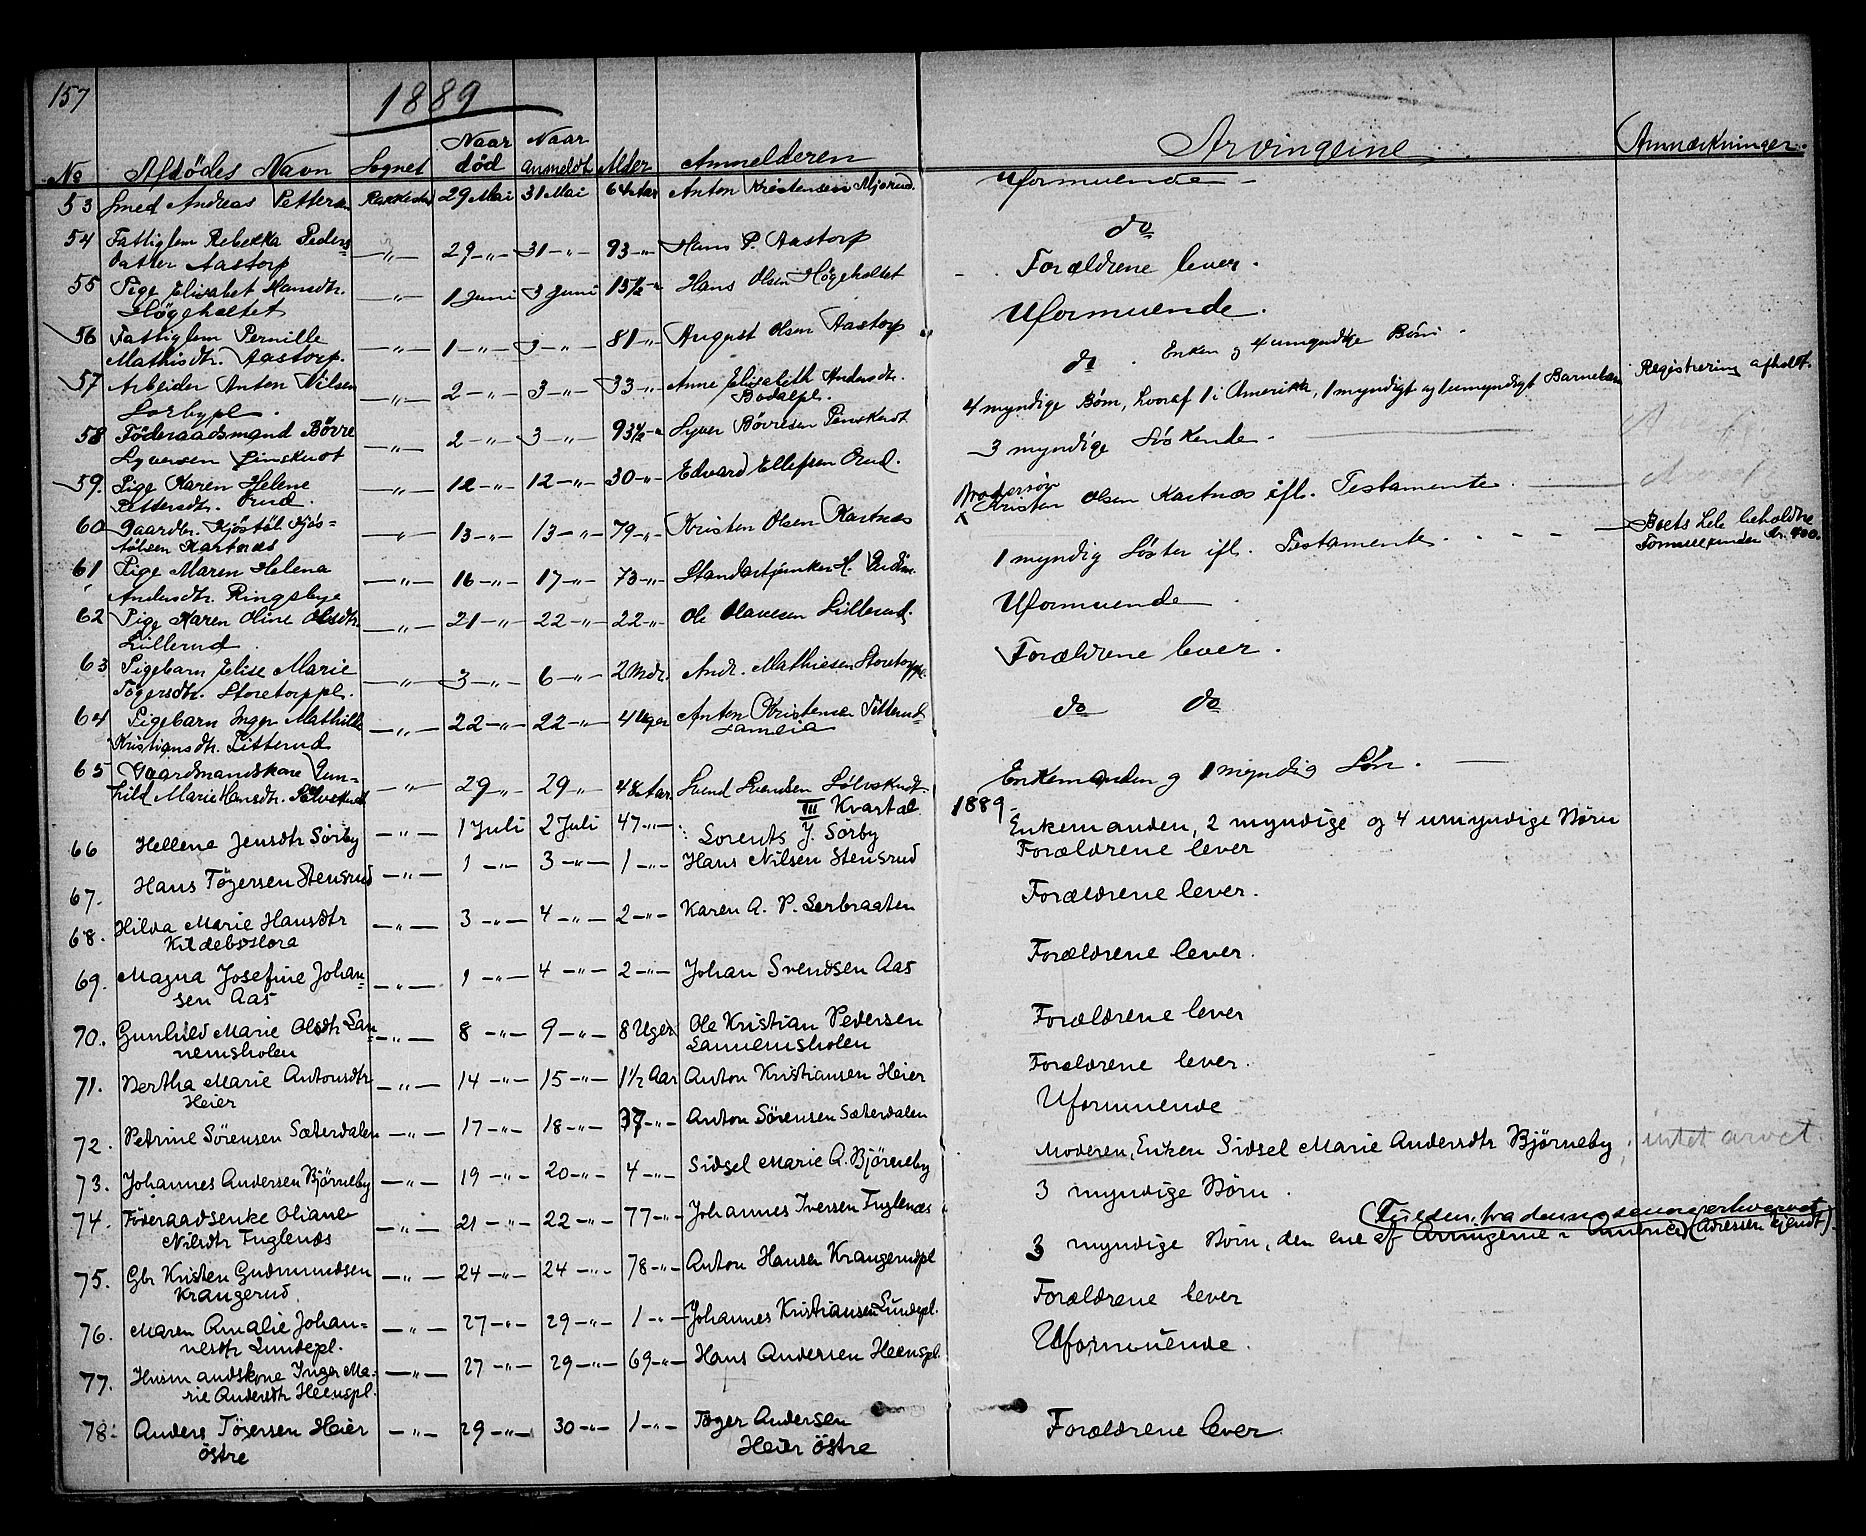 157
1889
No Afdödes Navn Sognet Naar död Naar anmeldt Alder Anmelderen Arvingerne Anmærkninger.
53 Smed Andreas Petters Rakkestad 29 Mai 31 Mai 64 Aar Anton Kristensen Mjørud. Uformuende
54 Fattiglem Rebekka Peders= —„— 29 —„— 31 —„— 93 —„— Hans P. Aastorp do
datter Aastorp
55 Pige Elisabet Hansdtr. —„— 1 Juni 3 Juni 15½ —„— Hans Olsen Høgeholtet Forældrene lever.
Høgeholtet
56 Fattiglem Pernille —„— 1 —„— 3 —„— 81 —„— August Olsen Aastorp Uformuende.
Mathisdtr. Aastorp.
57 Arbeider Anton Nilsen —„— 2 —„— 3 —„— 33 —„— Anne Elisabeth Andersdtr. do. Enken og 4 umyndige Børn.
Sørbypl. Bødalpl.
58 Föderaadsmand Bövre —„— 2 —„— 3 —„— 93½ —„— Syver Bövresen Finskudt 4 myndige Børn, hvoraf 1 i Amerika, 1 myndigt og 1 umyndigt Barnebarn Registrering afholdt.
Syversen Finskudt
59. Pige Karen Helene —„— 12 —„— 12 —„— 30 —„— Edvard Ellefsen Rud. 3 myndige Søskende.
Pettersdtr. Rud.
60 Gaardbr. Kjöstöl Kjös= —„— 13 —„— 13 —„— 79 —„— Kristen Olsen Kastnæs Brodersøn
Kristen Olsen Kastnæs ifl. Testamente.
tölsen Kastnæs
61 Pige Maren Helena —„— 16 —„— 17 —„— 73 —„— Standartjunker H. 1 myndig Søster ifl. Testamente. Boets Lele beholdne
Formue kr. 400.
Andersdtr. Ringsbye
62 Pige Karen Oline Olsdtr. —„— 21 —„— 22 —„— 22 —„— Ole Olavesen Lillerud. Uformuende.
Lillerud.
63 Pigebarn Elise Marie —„— 3 —„— 6 —„— 2 Mdr. Andr. Mathiesen Storetorppl. Forældrene lever.
Tögersdtr. Storetorppl.
64 Pigebarn Inger Mathilde —„— 22 —„— 22 —„— 4 Uger Anton Kristensen Titterud= do do
Kristiansdtr. Titterud
65 Gaardmandskone Gun= —„— 29 —„— 29 —„— 48 Aar Svend Svendsen Sølvskudt Enkemanden og 1 myndig Søn.
hild Marie Hansdtr. Sølvskudt
III Kvartal 1889
66 Hellene Jensdtr Sörby —„— 1 Juli 2 Juli 47 —„— Sorents J. Sörby Enkemanden, 2 myndige og 4 umyndige Børn
67. Hans Tögersen Stensrud —„— 1 —„— 3 —„— 1 —„— Hans Nilsen Stensrud Forældrene lever
68. Hilda Marie Hansdtr —„— 3 —„— 4 —„— 2 —„— Karen A. P. Sørbraaten Forældrene lever.
Kildebøslora
69. Magna Josefine Johan= —„— 1 —„— 4 —„— 2 —„— Johan Svendsen Aas Forældrene lever.
sen Aas
70. Gunhild Marie Olsdtr San= —„— 8 —„— 9 —„— 8 Uger Ole Kristian Pedersen Forældrene lever
nemsholen Sannemsholen
71. Bertha Marie Antonsdtr —„— 14 —„— 15 —„— 1½ Aar Anton Kristiansen Heier Forældrene lever.
Heier
72. Petrine Sörensen Sæterdalen —„— 17 —„— 18 —„— 37 —„— Anton Sörensen Sæterdalen Uformuende
73. Johannes Andersen Bjørneby —„— 19 —„— 20 —„— 4 —„— Sidsel Marie A. Bjørneby Moderen, Enken Sidsel Marie Andersdtr Bjørneby, intet arvet.
74. Föderaadsenke Oliane —„— 21 —„— 22 —„— 77 —„— Johannes Iversen Fuglenæs 3 myndige Børn.
Nilsdtr Fuglenæs
75. Gbr Kristen Gudmundsen —„— 24 —„— 24 —„— 78 —„— Anton Hansen Krangerudpl 3 myndige Børn, den ene af Arvingerne i America (Adressen kjendt).
Krangerud.
76. Maren Amalie Johan= —„— 27 —„— 29 —„— 1 —„— Johannes Kristiansen Lundepl. Forældrene lever
nesdtr Lundepl.
77. Husmandskone Inger Ma= —„— 27 —„— 29 —„— 69 —„— Hans Andersen Heenspl. Uformuende.
rie Andersdtr Heenspl.
78. Anders Tögersen Heier —„— 29 —„— 30 —„— 1 —„— Töger Andersen Forældrene lever.
östre Heier östre